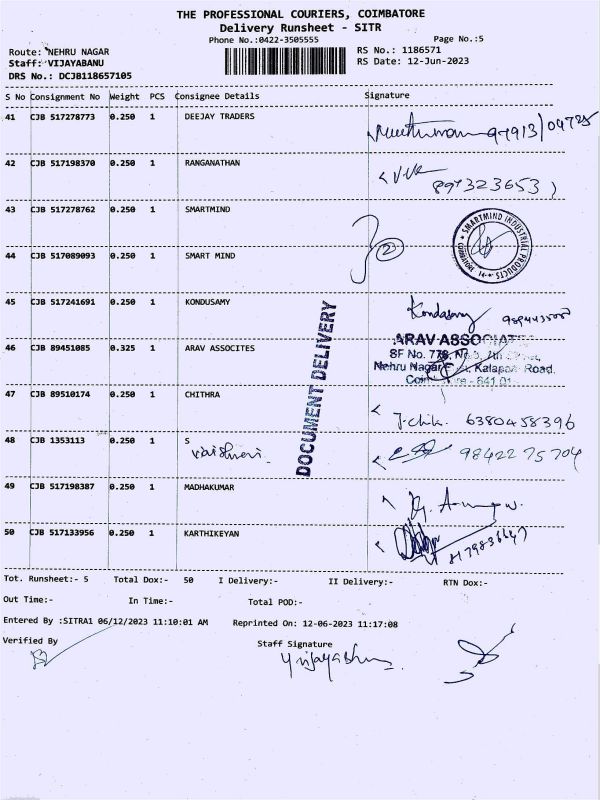 THE PROFESSIONAL COURIERS, COIMBATORE
Delivery Runsheet - SITR
Phone No.:0422-3505555 Page No.:5
Route: NEHRU NAGAR RS No.: 1186571
Staff: VIJAYABANU RS Date: 12-Jun-2023
DRS No.: DCJB118657105
S No Consignment No Weight PCS Consignee Details Signature
41 CJB 517278773 0.250 1 DEEJAY TRADERS
42 CJB 517198370 0.250 1 RANGANATHAN
43 CJB 517278762 0.250 1 SMARTMIND
SMARTMIND INDUSTRIAL PRODUCTS
COIMBATORE
44 CJB 517089093 0.250 1 SMART MIND
2
45 CJB 517241691 0.250 1 KONDUSAMY Kondasamy
DOCUMENT DELIVERY
46 CJB 89451085 0.325 1 ARAV ASSOCITES
ARAV ASSOCIATE
SF No. 778,
Nehru Nagar Kalapatti Road,
47 CJB 89510174 0.250 1 CHITHRA 6380458396
48 CJB 1353113 0.250 1 S
Vaishnavi. 98422 75704
49 CJB 517198387 0.250 1 MADHAKUMAR
50 CJB 517133956 0.250 1 KARTHIKEYAN
Tot. Runsheet:- 5 Total Dox:- 50 I Delivery:- II Delivery:- RTN Dox:-
Out Time:- In Time:- Total POD:-
Entered By :SITRA1 06/12/2023 11:10:01 AM Reprinted On: 12-06-2023 11:17:08
Verified By Staff Signature